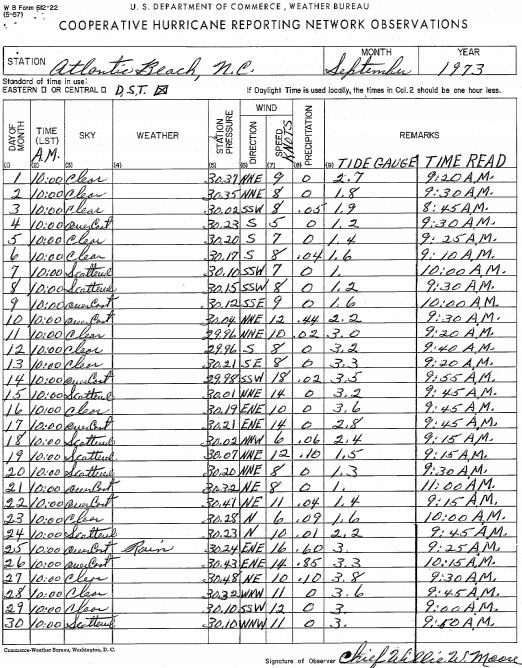 W B Form 612-22
(5-57)
U. S. DEPARTMENT OF COMMERCE, WEATHER BUREAU
COOPERATIVE HURRICANE REPORTING NETWORK OBSERVATIONS
STATION Atlantic Beach, N.C. MONTH September YEAR 1973
Standard of time in use:
EASTERN □ OR CENTRAL □ D.S.T. ☒ If Daylight Time is used locally, the times in Col. 2 should be one hour less.
DAY OF MONTH TIME (LST) A.M. SKY WEATHER STATION PRESSURE WIND DIRECTION SPEED KNOTS PRECIPITATION REMARKS
(1) (2) (3) (4) (5) (6) (7) (8) (9) TIDE GAUGE TIME READ
1 10:00 Clear 30.37 NNE 9 0 2.7 9:20 A.M.
2 10:00 Clear 30.35 NNE 8 0 1.8 9:30 A.M.
3 10:00 Clear 30.02 SSW 8 .05 1.9 8:45 A.M.
4 10:00 OverCast 30.23 S 5 0 1.2 9:30 A.M.
5 10:00 Clear 30.20 S 7 0 1.4 9:25 A.M.
6 10:00 Clear 30.17 S 8 .04 1.6 9:10 A.M.
7 10:00 Scattered 30.10 SSW 7 0 1. 10:00 A.M.
8 10:00 Scattered 30.15 SSW 8 0 1.2 9:30 A.M.
9 10:00 OverCast 30.12 SSE 9 0 1.6 10:00 A.M.
10 10:00 OverCast 30.04 NNE 12 .44 2.2 9:30 A.M.
11 10:00 Clear 29.96 NNE 10 .02 3.0 9:20 A.M.
12 10:00 Clear 29.96 S 8 0 3.2 9:40 A.M.
13 10:00 Clear 30.21 SE 8 0 3.3 9:20 A.M.
14 10:00 OverCast 29.98 SSW 18 .02 3.5 9:55 A.M.
15 10:00 Scattered 30.01 NNE 14 0 3.2 9:45 A.M.
16 10:00 Clear 30.19 ENE 10 0 3.6 9:45 A.M.
17 10:00 OverCast 30.21 ENE 14 0 2.8 9:45 A.M.
18 10:00 Scattered 30.02 NNW 6 .06 2.4 9:15 A.M.
19 10:00 Scattered 30.07 NNE 12 .10 1.5 9:15 A.M.
20 10:00 Scattered 30.20 NNE 8 0 1.3 9:30 A.M.
21 10:00 OverCast 30.32 NE 8 0 1. 11:00 A.M.
22 10:00 OverCast 30.41 NE 11 .04 1.4 9:15 A.M.
23 10:00 Clear 30.28 N 6 .09 1.6 10:00 A.M.
24 10:00 Scattered 30.23 N 10 .01 2.2 9:45 A.M.
25 10:00 OverCast Rain 30.24 ENE 16 .60 3. 9:25 A.M.
26 10:00 OverCast 30.43 ENE 14 .85 3.3 10:15 A.M.
27 10:00 Clear 30.48 NE 10 .10 3.8 9:30 A.M.
28 10:00 Clear 30.32 WNW 11 0 3.6 9:45 A.M.
29 10:00 Clear 30.10 SSW 12 0 3. 9:00 A.M.
30 10:00 Scattered 30.10 WNW 11 0 3. 9:50 A.M.
Commerce-Weather Bureau, Washington, D. C.
Signature of Observer Chief Willie W. Moore